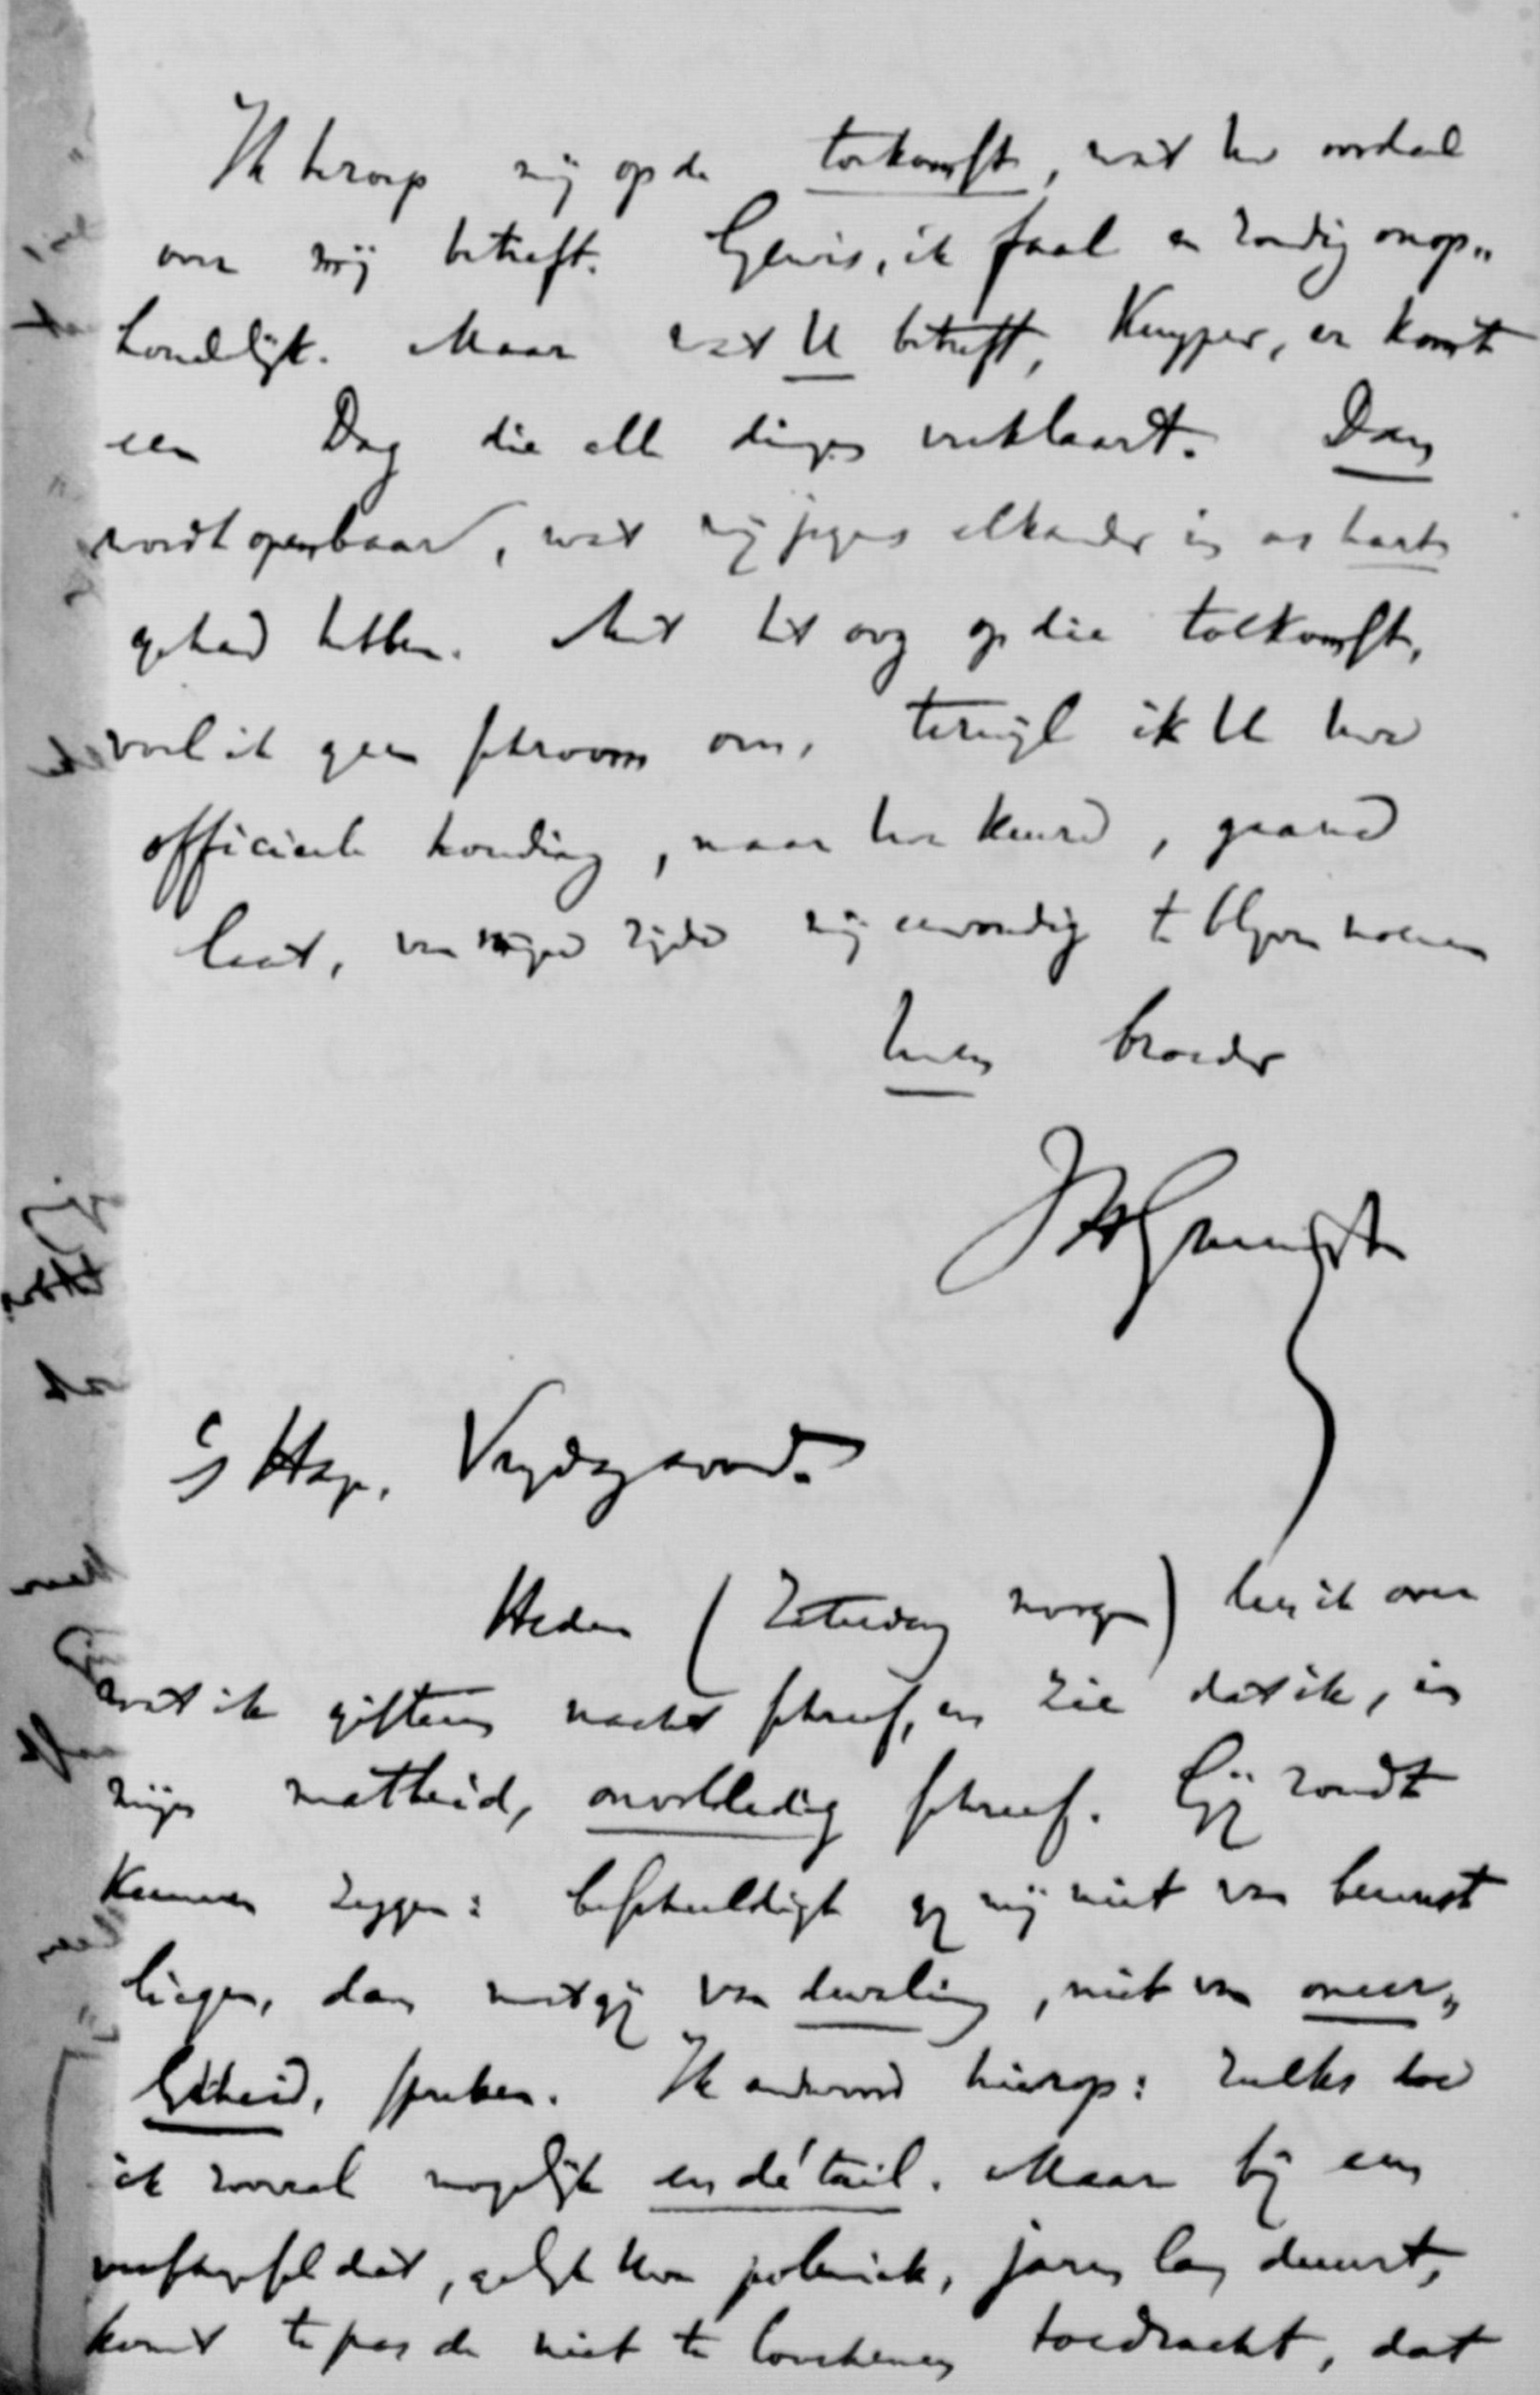 Ik beroep mij op de toekomst, wat Uw oordeel
over mij betreft. Gewis, ik faal en zondig onop„
houdelijk. Maar wat U betreft, Kuyper, er komt
een Dag die alle dingen verklaart. Dan
wordt openbaar, wat wij jegens elkander in os hart
gehad hebben. Met het oog op die toekomst,
voel ik geen schroom om, terwijl ik U Uwe
officieele houding, naar Uw keuze, gaarne
laat, van mijne zijde mij eenvoudig te blijven noemen
Uwen broeder
JHGunning
's Hage, Vrijdagavond.
Heden (Zaturdag morgen) lees ik over
wat ik gisteren nacht schreef, en zie dat ik, in
mijn matheid, onvolledig schreef. Gij zoudt
kunnen zeggen: beschuldigt gij mij niet van bewust
liegen, dan moet gij van dwaling, niet van oneer„
lijkheid, spreken. Ik antwoord hierop: zulks doe
ik zooveel mogelijk en détail. Maar bij een
stelsel dat, gelijk Uwe polemiek, jaren lang duurt,
komt te pas de niet te loochenen toedracht, dat